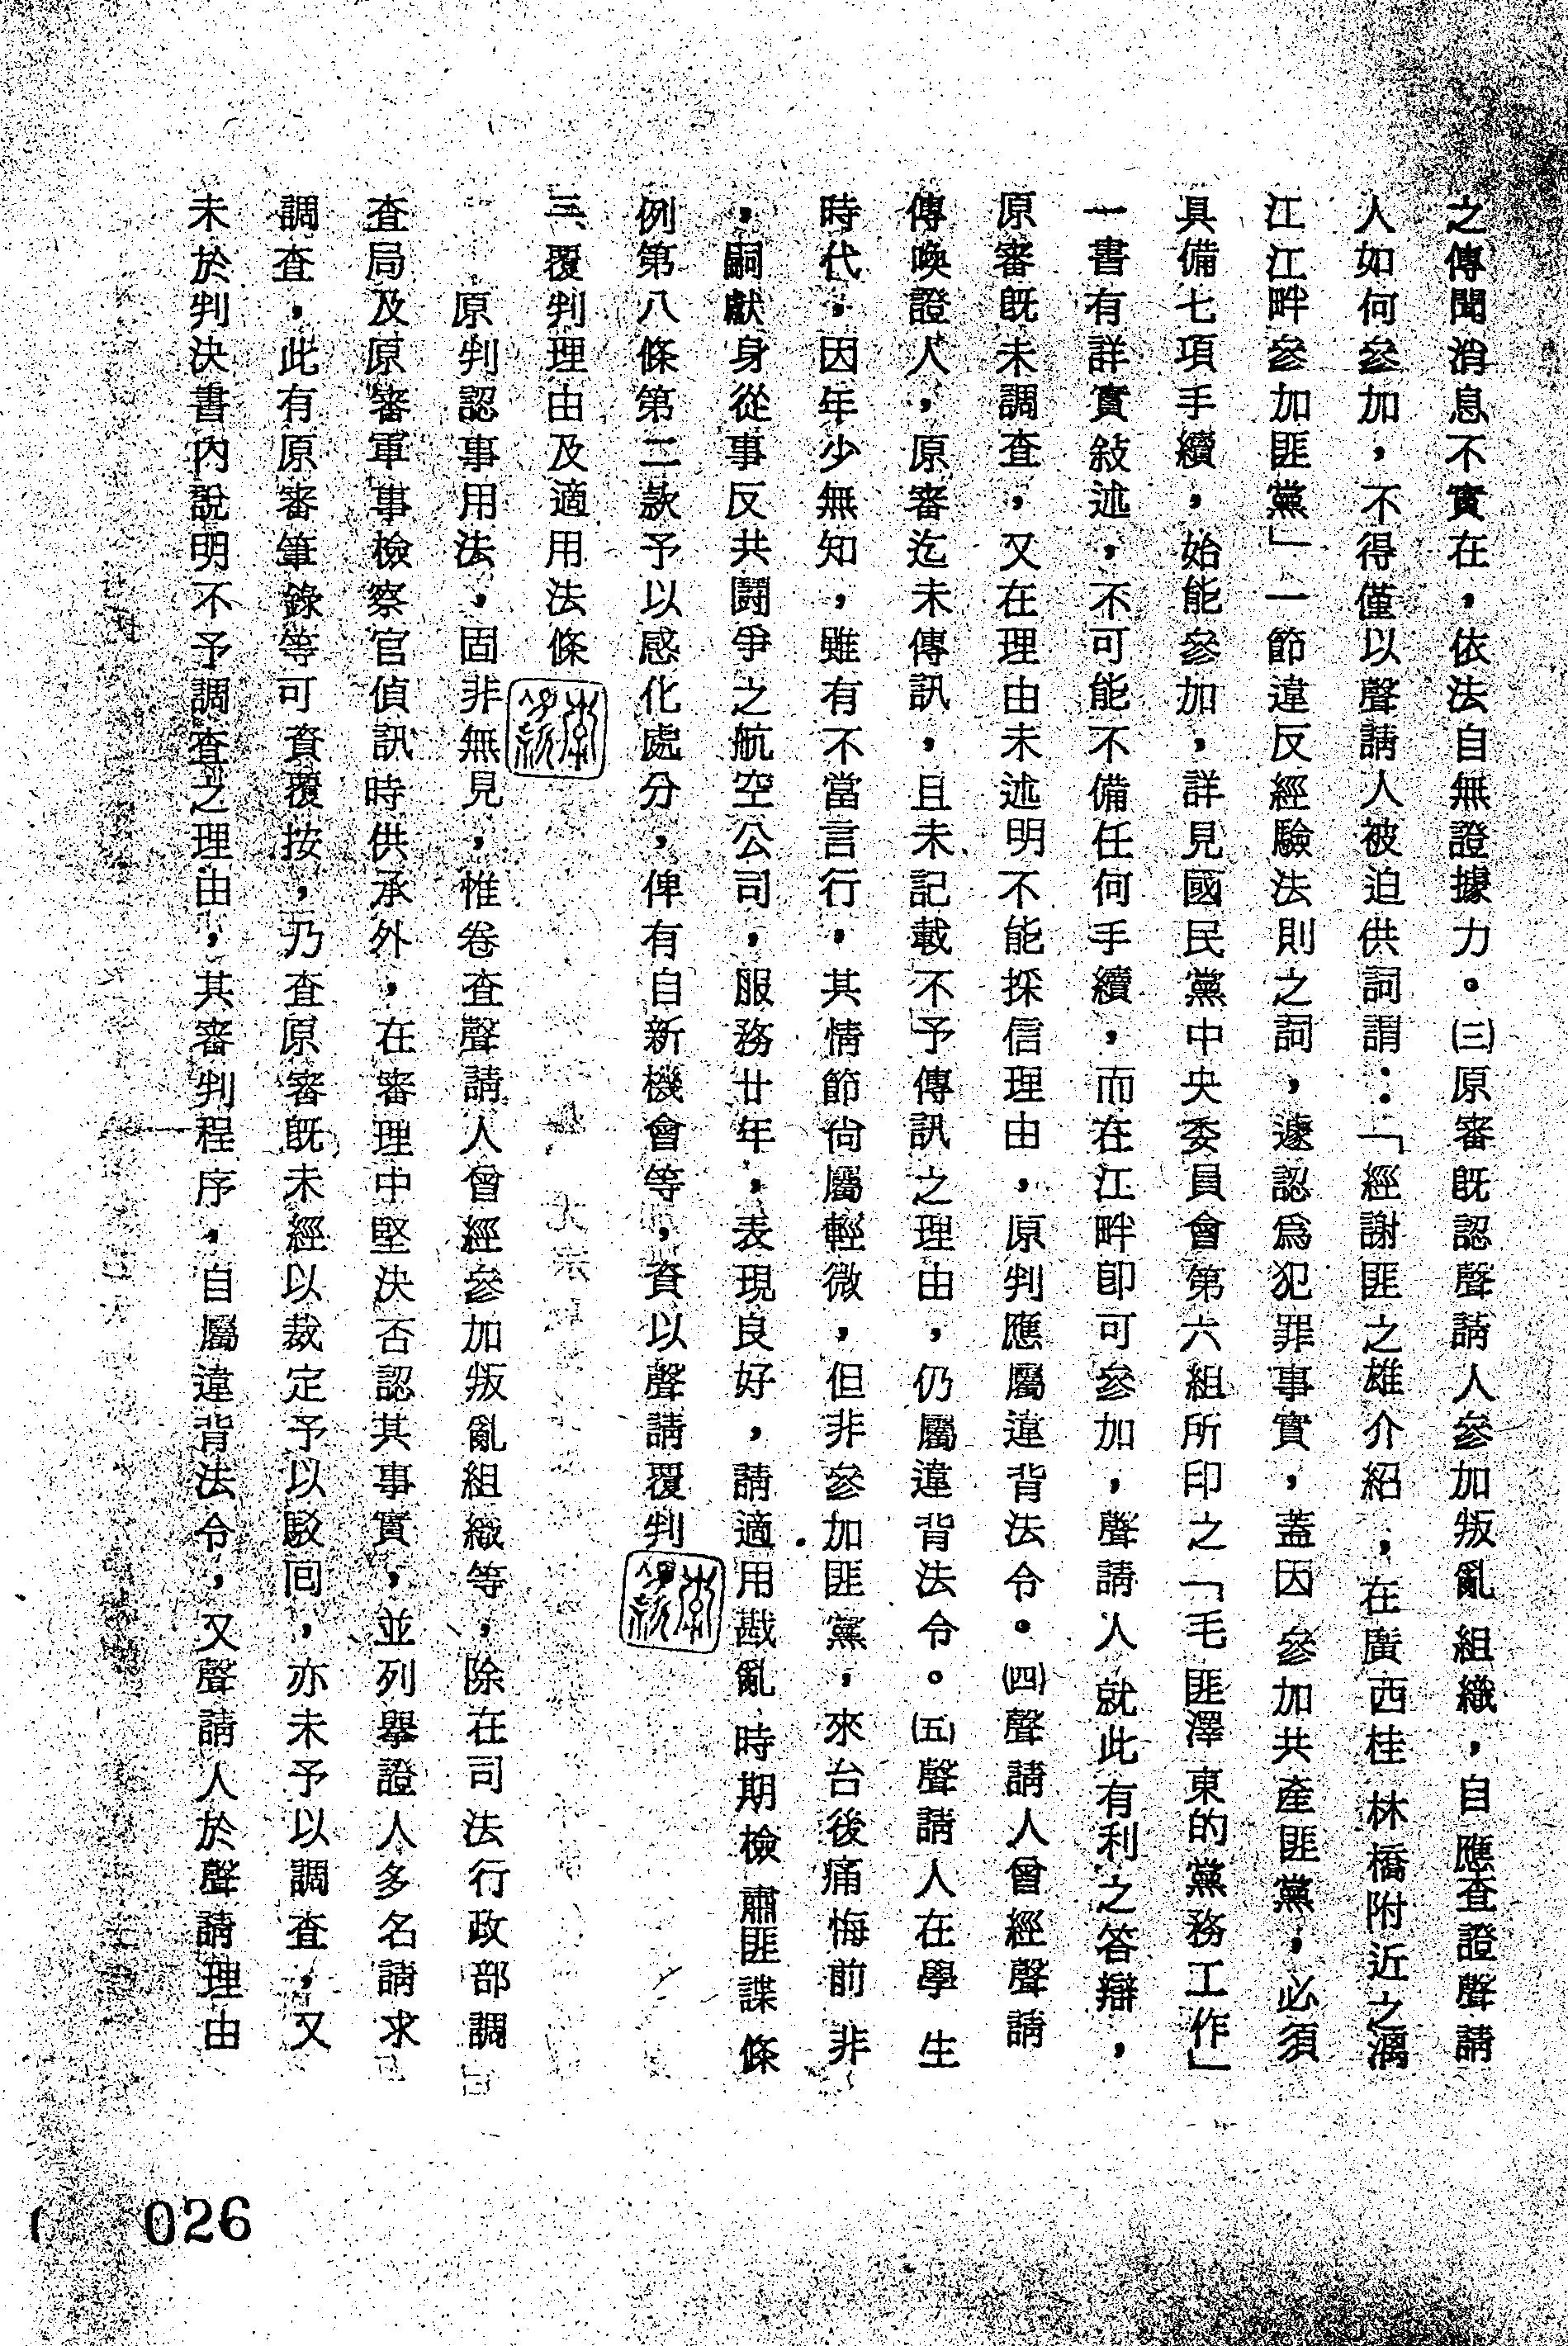 之傳聞消息不實在，依法自無證據力。㈢原審既認聲請人參加叛亂組織，自應查證聲請
人如何參加，不得僅以聲請人被迫供詞謂：「經謝匪之雄介紹，在廣西桂林橋附近之漓
江江畔參加匪黨」一節違反經驗法則之詞，遽認為犯罪事實，蓋因參加共產匪黨，必須
具備七項手續，始能參加，詳見國民黨中央委員會第六組所印之「毛匪澤東的黨務工作」
一書有詳實敍述，不可能不備任何手續，而在江畔即可參加，聲請人就此有利之答辯，
原審既未調查，又在理由未述明不能採信理由，原判應屬違背法令。㈣聲請人曾經聲請
傳喚證人，原審迄未傳訊，且未記載不予傳訊之理由，仍屬違背法令。㈤聲請人在學生
時代，因年少無知，雖有不當言行，其情節尙屬輕微，但非參加匪黨，來台後痛悔前非
，嗣獻身從事反共鬪爭之航空公司，服務廿年，表現良好，請適用戡亂時期檢肅匪諜條
例第八條第二款予以感化處分，俾有自新機會等，資以聲請覆判
三、覆判理由及適用法條
原判認事用法，固非無見，惟卷查聲請人曾經參加叛亂組織等，除在司法行政部調
查局及原審軍事檢察官偵訊時供承外，在審理中堅決否認其事實，並列舉證人多名請求
調查，此有原審筆錄等可資覆按，乃查原審既未經以裁定予以駁回，亦未予以調查，又
未於判決書內說明不予調查之理由，其審判程序，自屬違背法令，又聲請人於聲請理由
026